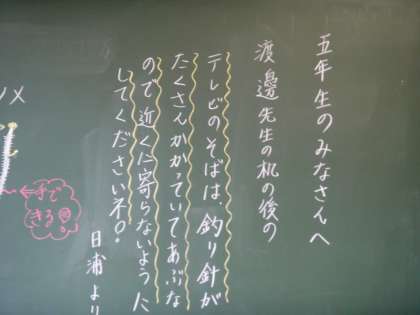 五年生のみなさんへ
渡邊先生の机の後の
テレビのそばは、釣り針が
たくさんかかっていてあぶな
ので近くに寄らないように
してくださいネ！
日浦より
手で
きる
メ